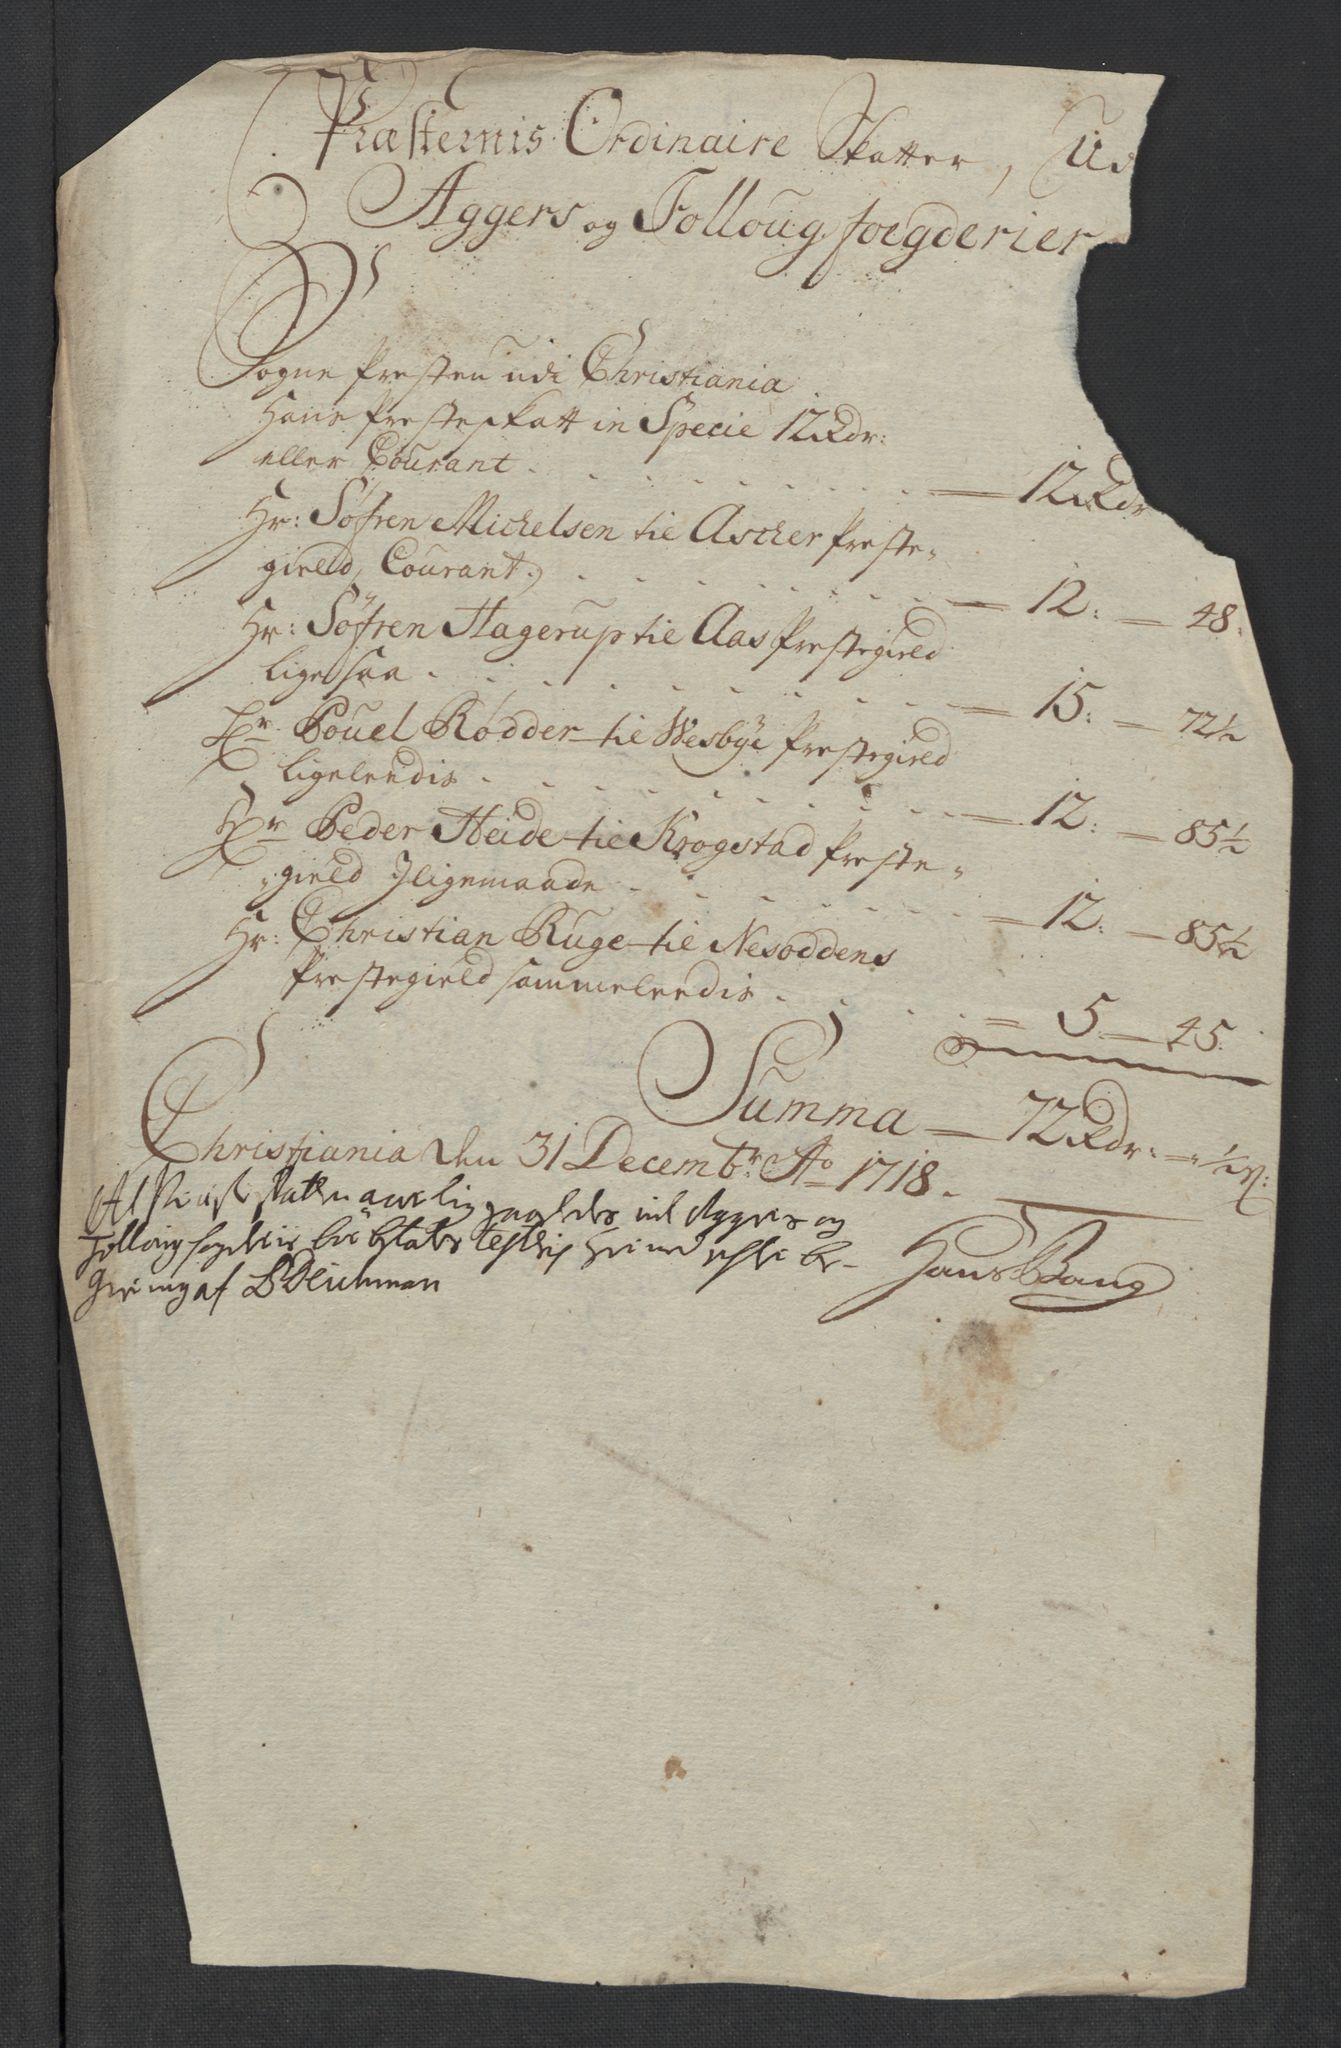 Præsternis Ordinaire Skatter, Ud
Aggers og Folloug foegderier
Sogne Presten udi Christiania
Hans Presteskatt in Specie 12 Rdr:
eller Courant . . . . . = 12 Rdr
Hr: Söfren Michelsen til Ascher Preste-
gield, Courant . . . . . = 12: — 48.
Hr: Söfren Hagerup til Aas Prestegield
ligesaa . . . . . = 15: — 72½
Hr Povel Rödder til Wesbye Prestegield
ligeledis . . . . . = 12: — 85½
Hr Peder Heide til Krogstad Preste-
gield Jligemaade . . . . . = 12: — 85½
Hr: Christian Ruge til Nesoddens
Prestegield sammeledis . . . . . = 5 — 45.
Summa — 72 Rdr: — „ ½ s:
Christiania den 31 Decembr: Ao 1718.
At skatten aarlig udi Aggers og
Folloug fogderie testis
af B Deichman
Hans Bang